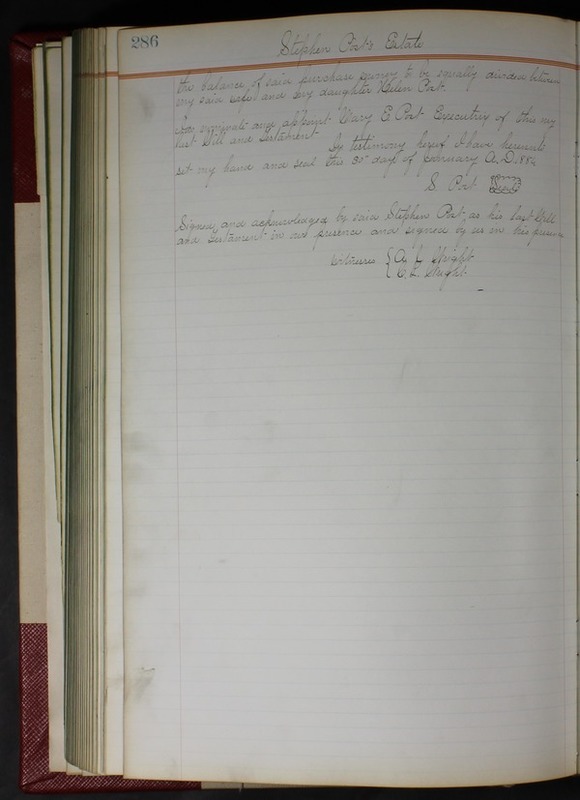 286
Stephen Post's Estate
the balance of said purchase money to be equally divided between
my said wife and my daughter Helen Post.
I do nominate and appoint Mary E Post Executrix of this my
last Will and Testament. In testimony hereof I have hereunto
set my hand and seal this 30 day of February A.D. 1882
S Post Seal
Signed and acknowledged by said Stephen Post as his last Will
and Testament in our presence and signed by us in his presence
Witnesses A. L. Wright
C. L. Wright